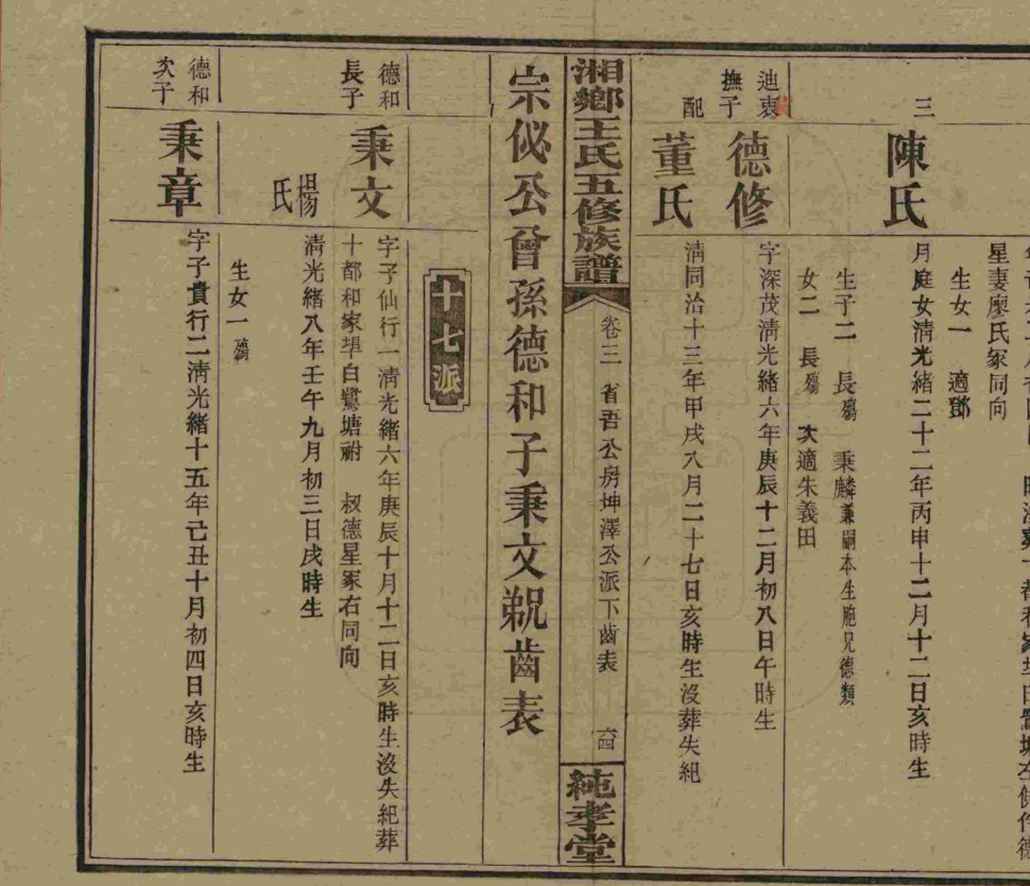 星妻廖氏冢同向
生女一　適鄧
三
陳氏
月庭女清光緒二十二年丙申十二月十二日亥時生
生子二　長殤　秉麟兼嗣本生胞兄德類
女二　長殤　次適朱義田
迪衷
撫子
德修
字深茂清光緒六年庚辰十二月初八日午時生
配
董氏
清同治十三年甲戌八月二十七日亥時生沒葬失紀
湘鄉王氏五修族譜
卷三　省吾公房坤澤公派下齒表
六四
純孝堂
宗佖公曾孫德和子秉文覜齒表
十七派
德和
長子
秉文
字子仙行一清光緒六年庚辰十月十二日亥時生沒失紀葬
十都和家垏白鷺塘祔　叔德星冢右同向
楊氏
清光緒八年壬午九月初三日戌時生
生女一殤
德和
次子
秉章
字子貴行二清光緒十五年己丑十月初四日亥時生